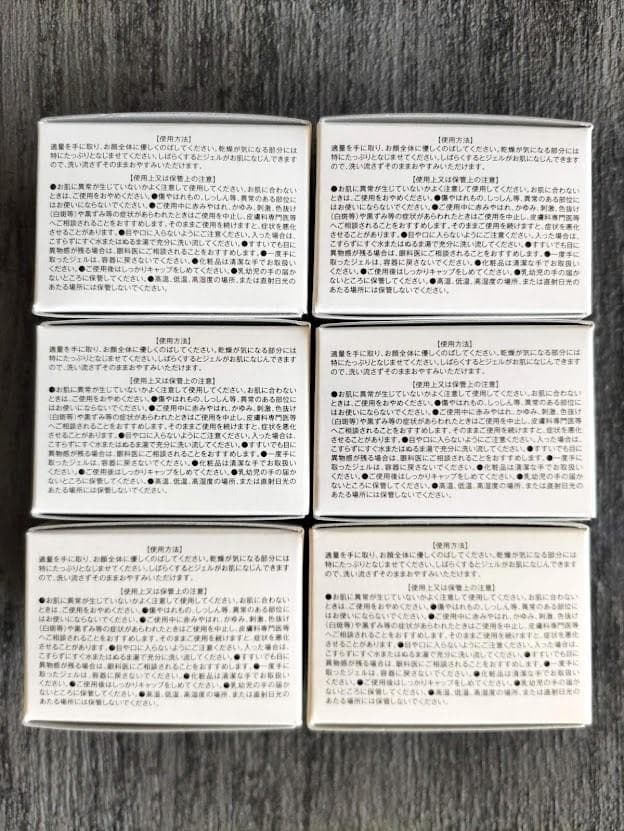 【使用方法】
適量を手に取り、お顔全体に優しくのばしてください。乾燥が気になる部分には
特にたっぷりとなじませてください。しばらくするとジェルがお肌になじんできます
ので、洗い流さずそのままおやすみいただけます。
【使用上又は保管上の注意】
●お肌に異常が生じていないかよく注意して使用してください。お肌に合わない
ときは、ご使用をおやめください。●傷やはれもの、しっしん等、異常のある部位に
はお使いにならないでください。●ご使用中に赤みやはれ、かゆみ、刺激、色抜け
(白斑等)や黒ずみ等の症状があらわれたときはご使用を中止し、皮膚科専門医等
へご相談されることをおすすめします。そのままご使用を続けますと、症状を悪化
させることがあります。●目や口に入らないようにご注意ください。入った場合は、
こすらずにすぐ水またはぬるま湯で充分に洗い流してください。●すすいでも目に
異物感が残る場合は、眼科医にご相談されることをおすすめします。●一度手に
取ったジェルは、容器に戻さないでください。●化粧品は清潔な手でお取扱い
ください。●ご使用後はしっかりキャップをしめてください。●乳幼児の手の届か
ないところに保管してください。●高温、低温、高湿度の場所、または直射日光の
あたる場所には保管しないでください。
【使用方法】
適量を手に取り、お顔全体に優しくのばしてください。乾燥が気になる部分には
特にたっぷりとなじませてください。しばらくするとジェルがお肌になじんできます
ので、洗い流さずそのままおやすみいただけます。
【使用上又は保管上の注意】
●お肌に異常が生じていないかよく注意して使用してください。お肌に合わない
ときは、ご使用をおやめください。●傷やはれもの、しっしん等、異常のある部位に
はお使いにならないでください。●ご使用中に赤みやはれ、かゆみ、刺激、色抜け
(白斑等)や黒ずみ等の症状があらわれたときはご使用を中止し、皮膚科専門医等
へご相談されることをおすすめします。そのままご使用を続けますと、症状を悪化
させることがあります。●目や口に入らないようにご注意ください。入った場合は、
こすらずにすぐ水またはぬるま湯で充分に洗い流してください。●すすいでも目に
異物感が残る場合は、眼科医にご相談されることをおすすめします。●一度手に
取ったジェルは、容器に戻さないでください。●化粧品は清潔な手でお取扱い
ください。●ご使用後はしっかりキャップをしめてください。●乳幼児の手の届か
ないところに保管してください。●高温、低温、高湿度の場所、または直射日光の
あたる場所には保管しないでください。
【使用方法】
適量を手に取り、お顔全体に優しくのばしてください。乾燥が気になる部分には
特にたっぷりとなじませてください。しばらくするとジェルがお肌になじんできます
ので、洗い流さずそのままおやすみいただけます。
【使用上又は保管上の注意】
●お肌に異常が生じていないかよく注意して使用してください。お肌に合わない
ときは、ご使用をおやめください。●傷やはれもの、しっしん等、異常のある部位に
はお使いにならないでください。●ご使用中に赤みやはれ、かゆみ、刺激、色抜け
(白斑等)や黒ずみ等の症状があらわれたときはご使用を中止し、皮膚科専門医等
へご相談されることをおすすめします。そのままご使用を続けますと、症状を悪化
させることがあります。●目や口に入らないようにご注意ください。入った場合は、
こすらずにすぐ水またはぬるま湯で充分に洗い流してください。●すすいでも目に
異物感が残る場合は、眼科医にご相談されることをおすすめします。●一度手に
取ったジェルは、容器に戻さないでください。●化粧品は清潔な手でお取扱い
ください。●ご使用後はしっかりキャップをしめてください。●乳幼児の手の届か
ないところに保管してください。●高温、低温、高湿度の場所、または直射日光の
あたる場所には保管しないでください。
【使用方法】
適量を手に取り、お顔全体に優しくのばしてください。乾燥が気になる部分には
特にたっぷりとなじませてください。しばらくするとジェルがお肌になじんできます
ので、洗い流さずそのままおやすみいただけます。
【使用上又は保管上の注意】
●お肌に異常が生じていないかよく注意して使用してください。お肌に合わない
ときは、ご使用をおやめください。●傷やはれもの、しっしん等、異常のある部位に
はお使いにならないでください。●ご使用中に赤みやはれ、かゆみ、刺激、色抜け
(白斑等)や黒ずみ等の症状があらわれたときはご使用を中止し、皮膚科専門医等
へご相談されることをおすすめします。そのままご使用を続けますと、症状を悪化
させることがあります。●目や口に入らないようにご注意ください。入った場合は、
こすらずにすぐ水またはぬるま湯で充分に洗い流してください。●すすいでも目に
異物感が残る場合は、眼科医にご相談されることをおすすめします。●一度手に
取ったジェルは、容器に戻さないでください。●化粧品は清潔な手でお取扱い
ください。●ご使用後はしっかりキャップをしめてください。●乳幼児の手の届か
ないところに保管してください。●高温、低温、高湿度の場所、または直射日光の
あたる場所には保管しないでください。
【使用方法】
適量を手に取り、お顔全体に優しくのばしてください。乾燥が気になる部分には
特にたっぷりとなじませてください。しばらくするとジェルがお肌になじんできます
ので、洗い流さずそのままおやすみいただけます。
【使用上又は保管上の注意】
●お肌に異常が生じていないかよく注意して使用してください。お肌に合わない
ときは、ご使用をおやめください。●傷やはれもの、しっしん等、異常のある部位に
はお使いにならないでください。●ご使用中に赤みやはれ、かゆみ、刺激、色抜け
(白斑等)や黒ずみ等の症状があらわれたときはご使用を中止し、皮膚科専門医等
へご相談されることをおすすめします。そのままご使用を続けますと、症状を悪化
させることがあります。●目や口に入らないようにご注意ください。入った場合は、
こすらずにすぐ水またはぬるま湯で充分に洗い流してください。●すすいでも目に
異物感が残る場合は、眼科医にご相談されることをおすすめします。●一度手に
取ったジェルは、容器に戻さないでください。●化粧品は清潔な手でお取扱い
ください。●ご使用後はしっかりキャップをしめてください。●乳幼児の手の届か
ないところに保管してください。●高温、低温、高湿度の場所、または直射日光の
あたる場所には保管しないでください。
【使用方法】
適量を手に取り、お顔全体に優しくのばしてください。乾燥が気になる部分には
特にたっぷりとなじませてください。しばらくするとジェルがお肌になじんできます
ので、洗い流さずそのままおやすみいただけます。
【使用上又は保管上の注意】
●お肌に異常が生じていないかよく注意して使用してください。お肌に合わない
ときは、ご使用をおやめください。●傷やはれもの、しっしん等、異常のある部位に
はお使いにならないでください。●ご使用中に赤みやはれ、かゆみ、刺激、色抜け
(白斑等)や黒ずみ等の症状があらわれたときはご使用を中止し、皮膚科専門医等
へご相談されることをおすすめします。そのままご使用を続けますと、症状を悪化
させることがあります。●目や口に入らないようにご注意ください。入った場合は、
こすらずにすぐ水またはぬるま湯で充分に洗い流してください。●すすいでも目に
異物感が残る場合は、眼科医にご相談されることをおすすめします。●一度手に
取ったジェルは、容器に戻さないでください。●化粧品は清潔な手でお取扱い
ください。●ご使用後はしっかりキャップをしめてください。●乳幼児の手の届か
ないところに保管してください。●高温、低温、高湿度の場所、または直射日光の
あたる場所には保管しないでください。